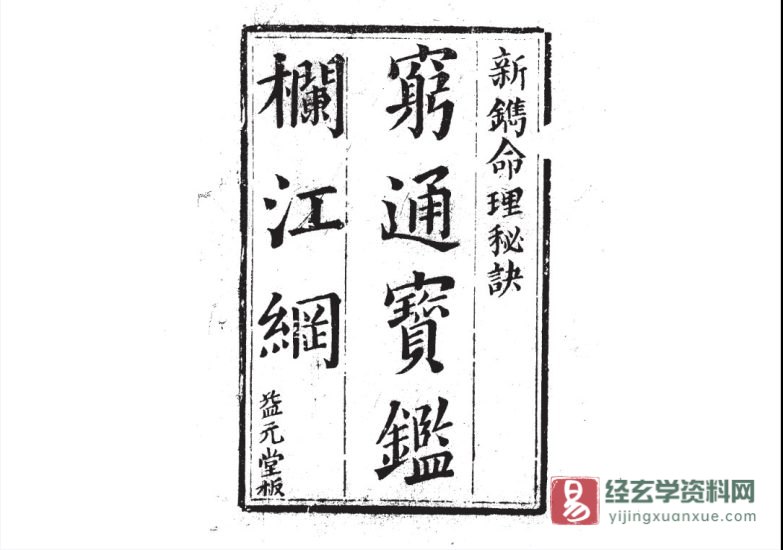 新鐫命理秘訣
窮通寶鑑
欄江網
益元堂板
易
经玄学资料网
yijingxuanxue.com